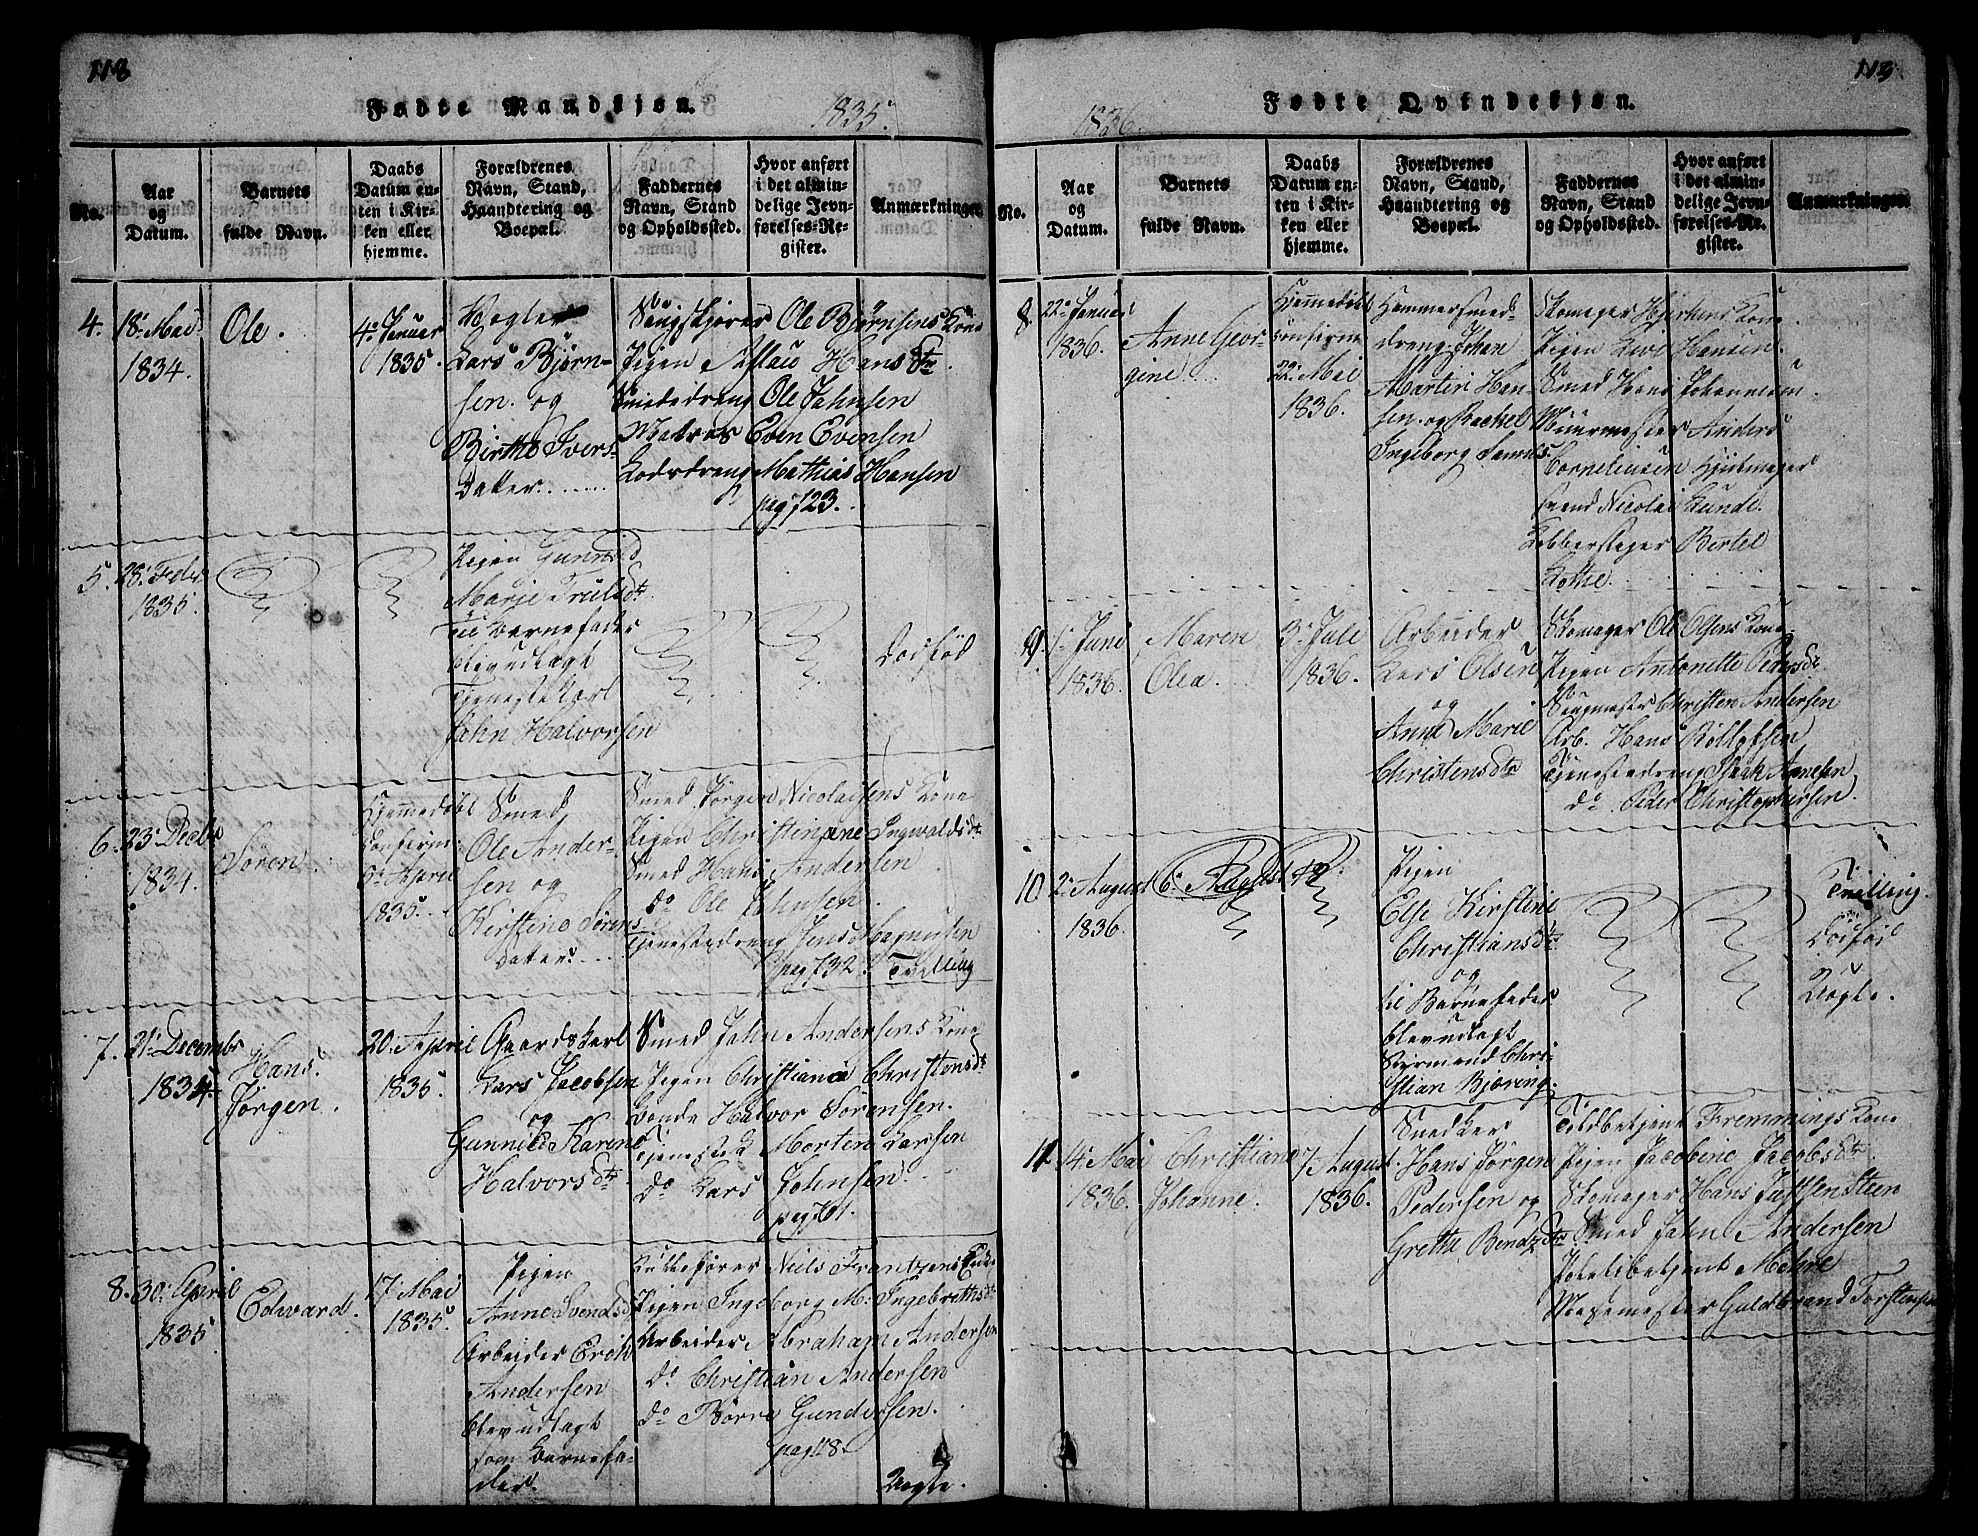 118
Fødte Mandkjøn.
1835.
No.
Aar
og
Datum.
Barnets
fulde Navn.
Daabs
Datum en-
ten i Kir-
ken eller
hjemme.
Forældrenes
Navn, Stand,
Haandtering og
Boepæl.
Faddernes
Navn, Stand
og Opholdssted.
Hvor anført
i det almin-
delige Jevn-
førelses-Re-
gister.
Anmærkninger
4.
18. Mai
1834.
Ole.
4. Januar
1835.
Lars Bjørn-
sen. og
Birthe Ivers-
datter
Ole Bjørnsens Kone
Pigen Aslau Hansdtr.
Smededreng Ole Jahnsen
Matros Even Evensen
Lodsdreng Mathias Hansen
pag 123.
5.
28. Febr.
1835.
Pigen Gunnild
Marie Trulsdtr
til Barnefader
blev udlagt
Tjenestekarl
Jahn Halvorsen
Dødfød
6.
23. Decbr
1834.
Søren
Hjemmedøbt
Confirm.
6. April
1835.
Smed
Ole Ander-
sen og
Kirstine Sørens-
datter.
Smed Jørgen Nicolaisens Kone
Pigen Christiane Ingvaldsdtr
Smed Hans Andersen
do Ole Johnsen
Tjenestedreng Jens Magnusen
pag 132. Tvilling
7.
31. Decembr
1834.
Hans
Jørgen.
20. April
1835.
Gaardskarl
Lars Jacobsen
og
Gunnild Karine
Halvorsdtr
Smed Jahn Andersens Kone
Pigen Christiane Christensdtr
Bonde Halvor Sørensen.
Tjenestek. Morten Larsen
do Lars Johnsen.
pag 161.
8.
30. April
1835.
Edvard.
17. Mai
1835.
Pigen
Anne Svendsd.
Arbeider Erik
Andersen
blev udlagt
som Barnefa-
der.
Niels Frantzens Enke
Pigen Ingeborg M. Ingebretsdtr
Arbeider Abraham Andersen
do Christian Andersen
do Børre Gundersen.
pag 118.
Uægte.
113
Fødte Qvindekjøn.
1836.
No.
Aar
og
Datum.
Barnets
fulde Navn.
Daabs
Datum en-
ten i Kir-
ken eller
hjemme.
Forældrenes
Navn, Stand,
Haandtering og
Boepæl.
Faddernes
Navn, Stand
og Opholdssted.
Hvor anført
i det almin-
delige Jevn-
førelses-Re-
gister.
Anmærkninger
8
22. Januar
1836.
Anne Geor-
gine.
Hjemmedøbt
confirm
22. Mai
1836.
Hammersmed-
dreng Johan
Martin Han-
sen. og Rachel
Ingeborg
Skomager Kone
Pigen Live Hansen.
Smed Hans Johannesen
Muurmester Anders
Corneliusen Hjulmager
svend Nicolai Lunde.
Kobberslager Bertel
9.
1. Juni
1836.
Maren
Olea.
3. Juli
1836.
Arbeider
Lars Olsen
og
Anne Marie
Christensdtr
Skomager Ole Olsens Kone
Pigen Antonette Pedersdtr
Christen Andersen
Arb. Hans Rolløfsen
Tjenestedreng Isaak Annesen
do Peder Christophersen.
10.
2. August
1836.
Pigen
Else Kirstine
Christiansdtr
og
til Barnefader
blev udlagt
Styrmand Chri-
stian Bjøring.
Tvilling.
Dødfød
Uægte.
11.
4. Mai
1836.
Christiane
Johanne.
7. August.
1836.
Snedker
Hans Jørgen
Pedersen og
Grethe Bendzdtr
Toldbetjent Fremmings Kone
Pigen Jacobine Jacobsdtr
Skomager Hans Justsen Steen
Smed Jahn Andersen
Politibetjent Mohre
Guldbrand Torstensen